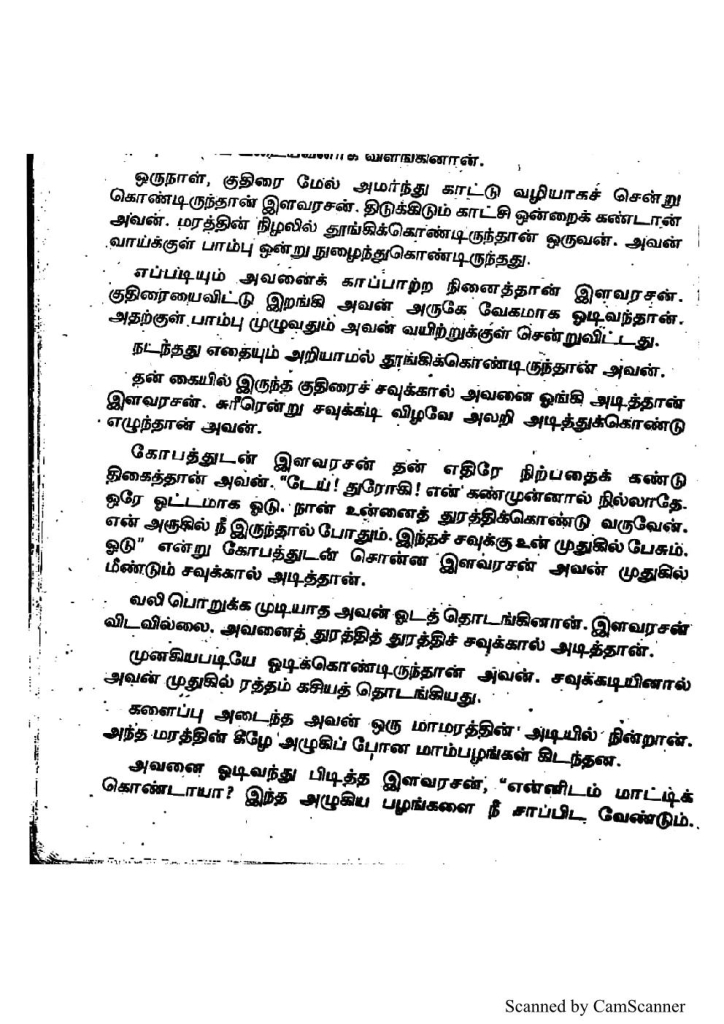 விளங்கினான்.
ஒருநாள், குதிரை மேல் அமர்ந்து காட்டு வழியாகச் சென்று
கொண்டிருந்தான் இளவரசன். திடுக்கிடும் காட்சி ஒன்றைக் கண்டான்
அவன். மரத்தின் நிழலில் தூங்கிக்கொண்டிருந்தான் ஒருவன். அவன்
வாய்க்குள் பாம்பு ஒன்று நுழைந்துகொண்டிருந்தது.
எப்படியும் அவனைக் காப்பாற்ற நினைத்தான் இளவரசன்.
குதிரையைவிட்டு இறங்கி அவன் அருகே வேகமாக ஓடிவந்தான்.
அதற்குள் பாம்பு முழுவதும் அவன் வயிற்றுக்குள் சென்றுவிட்டது.
நடந்தது எதையும் அறியாமல் தூங்கிக்கொண்டிருந்தான் அவன்.
தன் கையில் இருந்த குதிரைச் சவுக்கால் அவனை ஓங்கி அடித்தான்
இளவரசன். சுரீரென்று சவுக்கடி விழவே அலறி அடித்துக்கொண்டு
எழுந்தான் அவன்.
கோபத்துடன் இளவரசன் தன் எதிரே நிற்பதைக் கண்டு
திகைத்தான் அவன். "டேய்! துரோகி! என் கண்முன்னால் நில்லாதே.
ஒரே ஓட்டமாக ஓடு. நான் உன்னைத் துரத்திக்கொண்டு வருவேன்.
என் அருகில் நீ இருந்தால் போதும். இந்தச் சவுக்கு உன் முதுகில் பேசும்.
ஓடு" என்று கோபத்துடன் சொன்ன இளவரசன் அவன் முதுகில்
மீண்டும் சவுக்கால் அடித்தான்.
வலி பொறுக்க முடியாத அவன் ஓடத் தொடங்கினான். இளவரசன்
விடவில்லை. அவனைத் துரத்தித் துரத்திச் சவுக்கால் அடித்தான்.
முனகியபடியே ஓடிக்கொண்டிருந்தான் அவன். சவுக்கடியினால்
அவன் முதுகில் ரத்தம் கசியத் தொடங்கியது.
களைப்பு அடைந்த அவன் ஒரு மாமரத்தின் அடியில் நின்றான்.
அந்த மரத்தின் கீழே அழுகிப் போன மாம்பழங்கள் கிடந்தன.
அவனை ஓடிவந்து பிடித்த இளவரசன், "என்னிடம் மாட்டிக்
கொண்டாயா? இந்த அழுகிய பழங்களை நீ சாப்பிட வேண்டும்.
Scanned by CamScanner